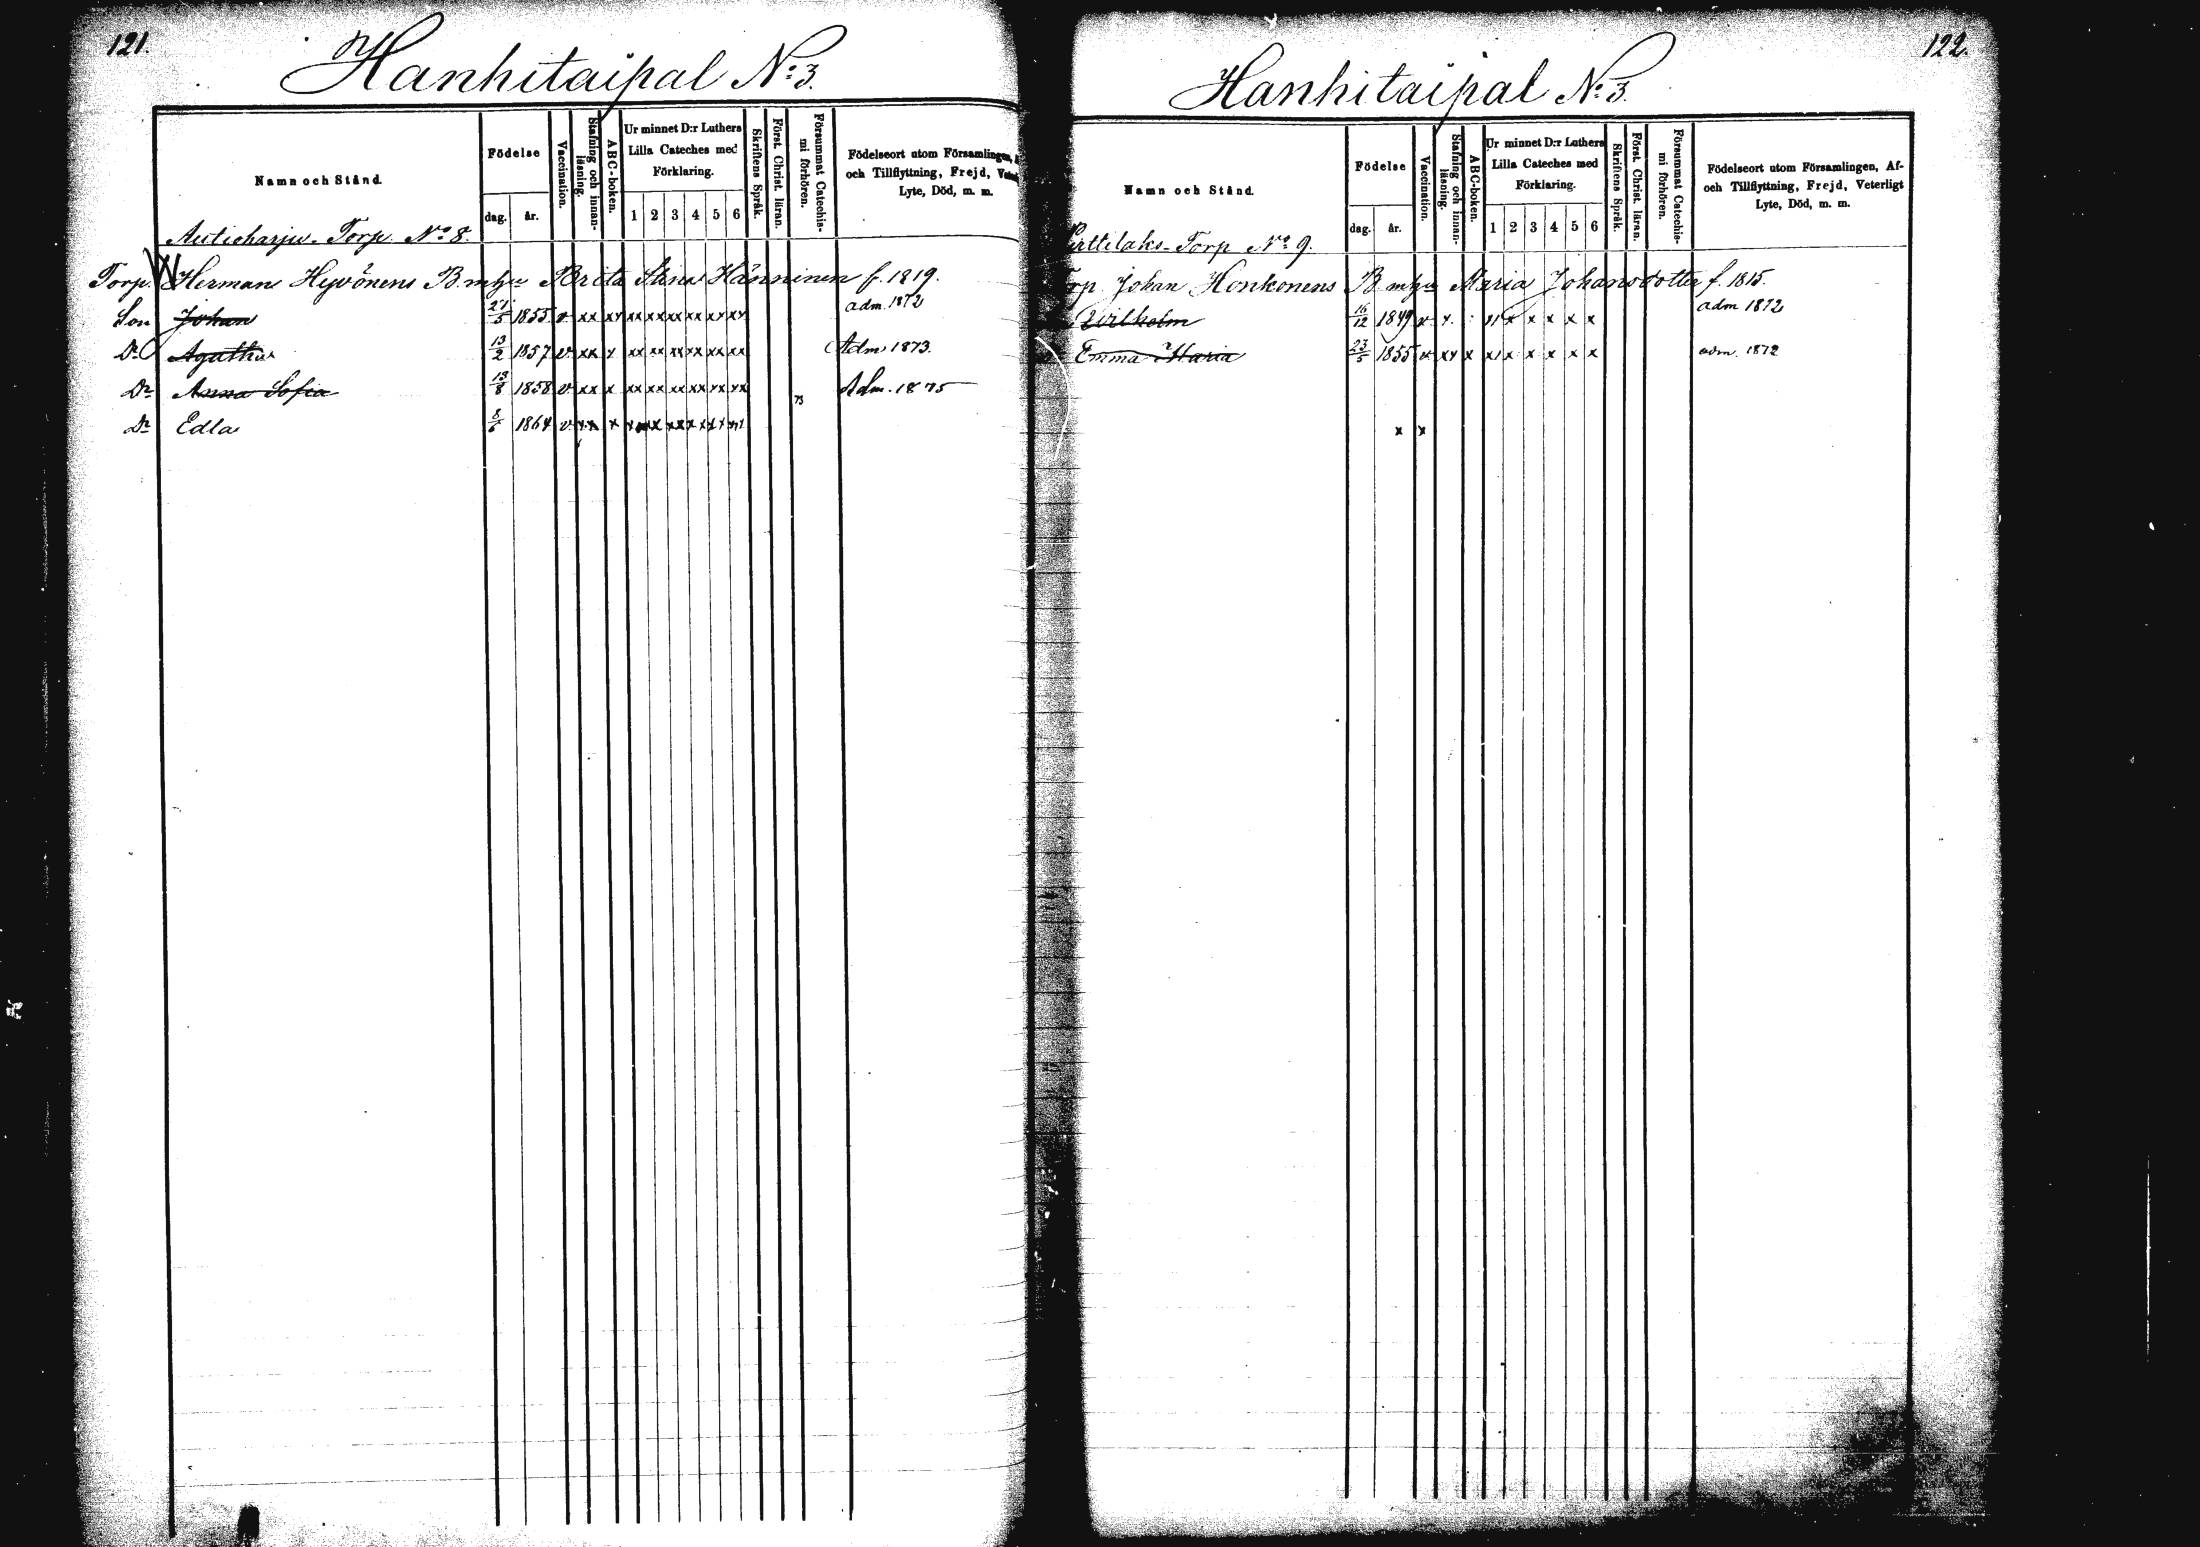 121.
Hanhitaipal No: 3.
Namn och Stånd.
Födelse
dag. år.
Vaccination.
Stafning och innan-
läsning.
ABC-boken.
Ur minnet D:r Luthers
Lilla Cateches med
Förklaring.
1 2 3 4 5 6
Skriftens Språk.
Först. Christ. läran.
Försummat Catechis-
mi förhören.
Födelseort utom Församlingen,
och Tillflyttning, Frejd,
Lyte, Död, m. m.
Autioharju Torp No: 8.
Torp. Herman Hyvönens B. m hu Brita Stina Hänninen f. 1819.
Son Johan 27/5 1855 v xx xx xx xx xx xx xx xx adm. 1872
Dr Agatha 13/2 1857 v xx x xx xx xx xx xx xx Adm 1873.
Dr Anna Sofia 13/8 1858 v xx x xx xx xx xx xx xx 73 Adm. 1875
Dr Edla 8/6 1864 v xx x
122.
Hanhitaipal No: 3.
Namn och Stånd.
Födelse
dag. år.
Vaccination.
Stafning och innan-
läsning.
ABC-boken.
Ur minnet D:r Luthers
Lilla Cateches med
Förklaring.
1 2 3 4 5 6
Skriftens Språk.
Först. Christ. läran.
Försummat Catechis-
mi förhören.
Födelseort utom Församlingen, Af-
och Tillflyttning, Frejd, Veterligt
Lyte, Död, m. m.
Torp No: 9.
Johan Honkonens B. m hu Maria Johansdotter f. 1815.
Wilhelm 16/12 1849 v x. x x x x x adm 1872
Emma Maria 23/5 1855 v xx x x x x x x adm. 1872
x x